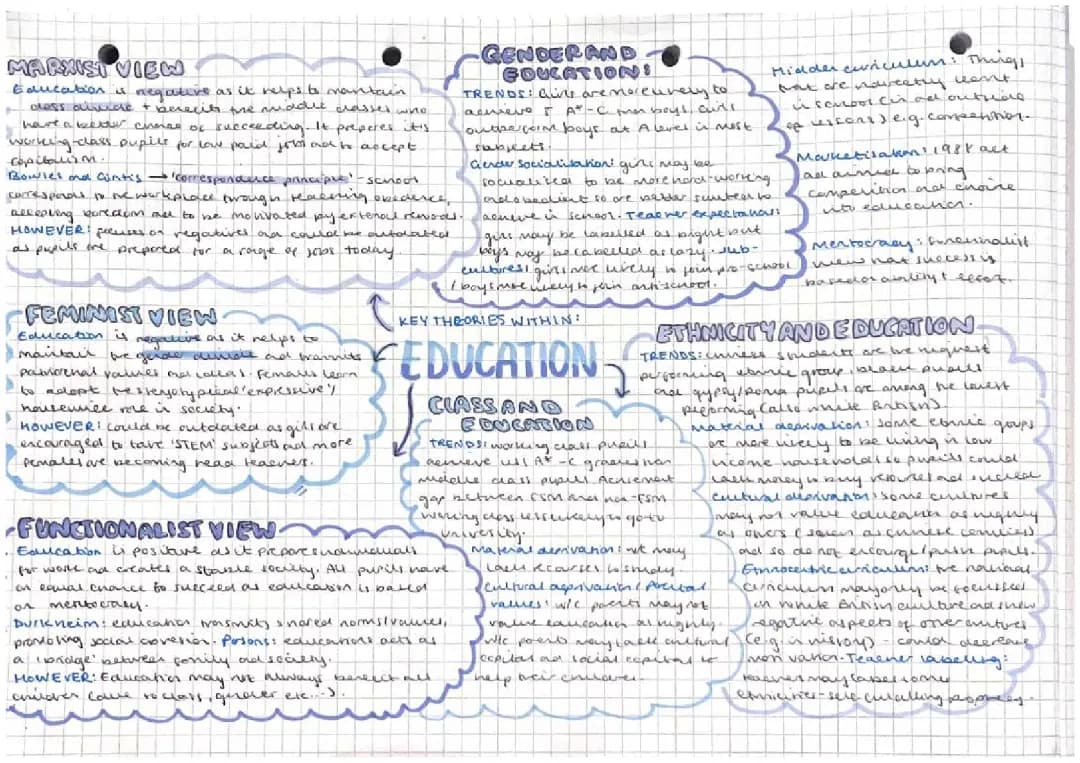 MARXIST VIEW
Education is negative as it helps to maintain
class divide + benefits the middle classes who
have a better chance of succeeding. It prepares it's
working-class pupils for low paid jobs and to accept
capitalism.
Bowles and Gintis → 'correspondence principle' - school
corresponds to the workplace through teaching obedience,
accepting boredom and to be motivated by external rewards.
HOWEVER: focuses on negatives and could be outdated
as pupils are prepared for a range of jobs today.
GENDER AND
EDUCATION:
TRENDS: Girls are more likely to
achieve 5 A*-C than boys. Girls
outperform boys at A level in most
subjects.
Gender socialisation: girls may be
socialised to be more hard-working
and obedient so are better suited to
achieve in school. Teacher expectations:
girls may be labelled as bright but
boys may be labelled as lazy. Sub-
cultures: girls more likely to join pro-school
/ boys more likely to join anti-school.
Hidden curriculum: Things
that are indirectly learnt
in school (in and outside
of lessons) e.g. competition.
Marketisation: 1988 act
and aimed to bring
competition and choice
into education.
Meritocracy: Functionalist
view that success is
based on ability + effort.
FEMINIST VIEW
Education is negative as it helps to
maintain the gender divide and transmits
patriarchal values and ideas. Females learn
to adopt the stereotypical 'expressive'/
housewife role in society.
HOWEVER: could be outdated as girls are
encouraged to take 'STEM' subjects and more
females are becoming head teachers.
KEY THEORIES WITHIN:
EDUCATION
CLASS AND
EDUCATION
TRENDS: working class pupils
achieve less A*-C grades than
middle class pupils. Achievement
gap between FSM and non-FSM
working class less likely to go to
university.
Material deprivation: w/c may
lack resources to study.
Cultural deprivation / Parental
values: w/c parents may not
value education as highly.
w/c parents may lack cultural
capital and social capital to
help their children.
ETHNICITY AND EDUCATION
TRENDS: Chinese students are the highest
performing ethnic group, black pupils
and gypsy/Roma pupils are among the lowest
performing (also white British).
Material deprivation: Some ethnic groups
are more likely to be living in low
income households so pupils could
lack money to buy resources and succeed
Cultural deprivation: some cultures
may not value education as highly
as others (such as Chinese families)
and so do not encourage/push pupils.
Ethnocentric curriculum: the national
curriculum may only be focussed
on white British culture and show
negative aspects of other cultures
(e.g. in history) - could decrease
motivation. Teacher labelling:
teacher may label some
ethnicities - self-fulfilling prophecy.
FUNCTIONALIST VIEW
Education is positive as it prepares individuals
for work and creates a stable society. All pupils have
an equal chance to succeed as education is based
on meritocracy.
Durkheim: education transmits shared norms/values,
promoting social cohesion. Parsons: education acts as
a 'bridge' between family and society.
HOWEVER: Education may not always benefit all
children (due to class, gender etc...).